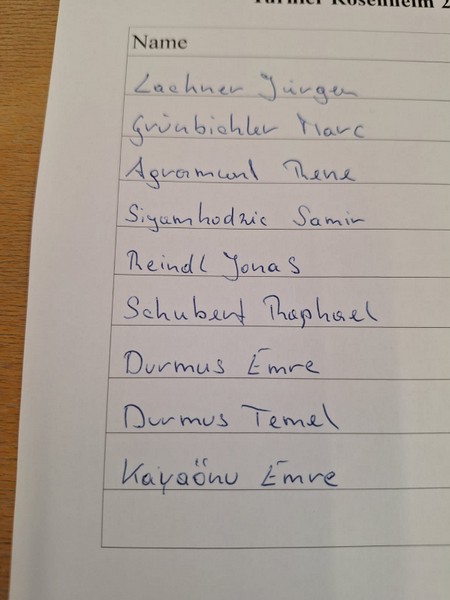 Turnier Rosenheim 2
Name
Lachner Jürgen
Grünbichler Marc
Rene
Siyamhodzic Samir
Reindl Jonas
Schubert Raphael
Durmus Emre
Durmus Temel
Kayaönu Emre